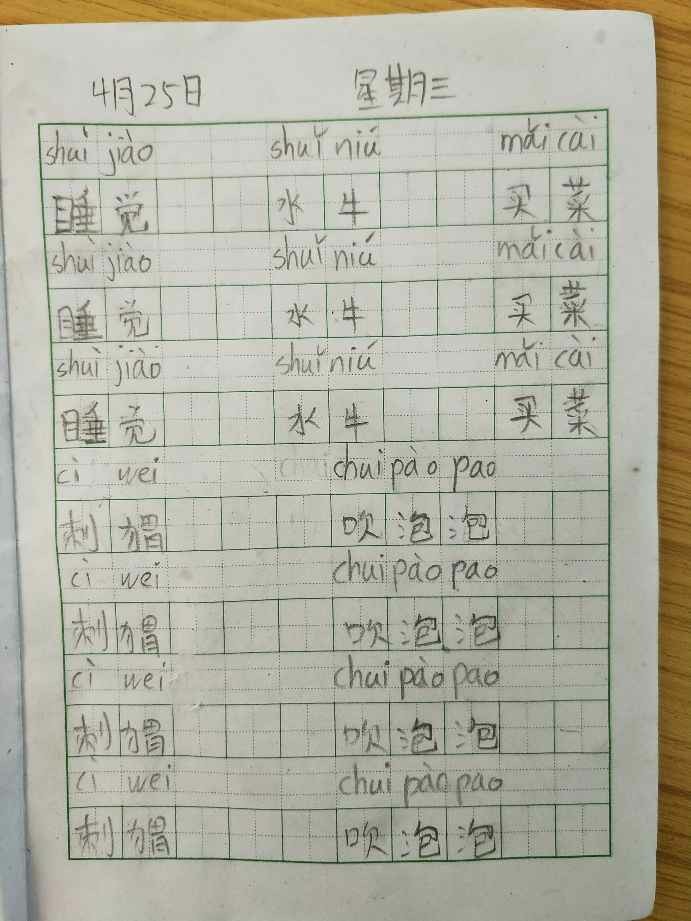 4月25日 星期三
shuì jiào shuǐ niú mǎi cài
睡觉 水牛 买菜
shuì jiào shuǐ niú mǎi cài
睡觉 水牛 买菜
shuì jiào shuǐ niú mǎi cài
睡觉 水牛 买菜
cì wei chui pào pao
刺猬 吹泡泡
cì wei chui pào pao
刺猬 吹泡泡
cì wei chui pào pao
刺猬 吹泡泡
cì wei chui pào pao
刺猬 吹泡泡